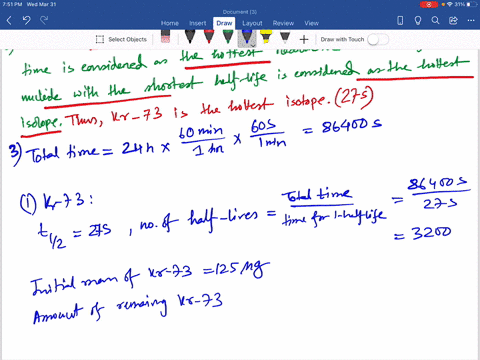 7:51 PM Wed Mar 31
Document (3)
31%
Home Insert Draw Layout Review View
Select Objects
Draw with Touch
time is considered as the hottest
nuclide with the shortest half-life is considered as the hottest
isotope. Thus, Kr-73 is the hottest isotope. (27s)
3) Total time = 24h × 60 min / 1 hr × 60s / 1 min = 86400 s
① Kr-73:
t1/2 = 27s, no. of half-lives = Total time / time for 1-half-life = 86400 s / 27s
= 3200
Initial mass of Kr-73 = 125 μg
Amount of remaining Kr-73